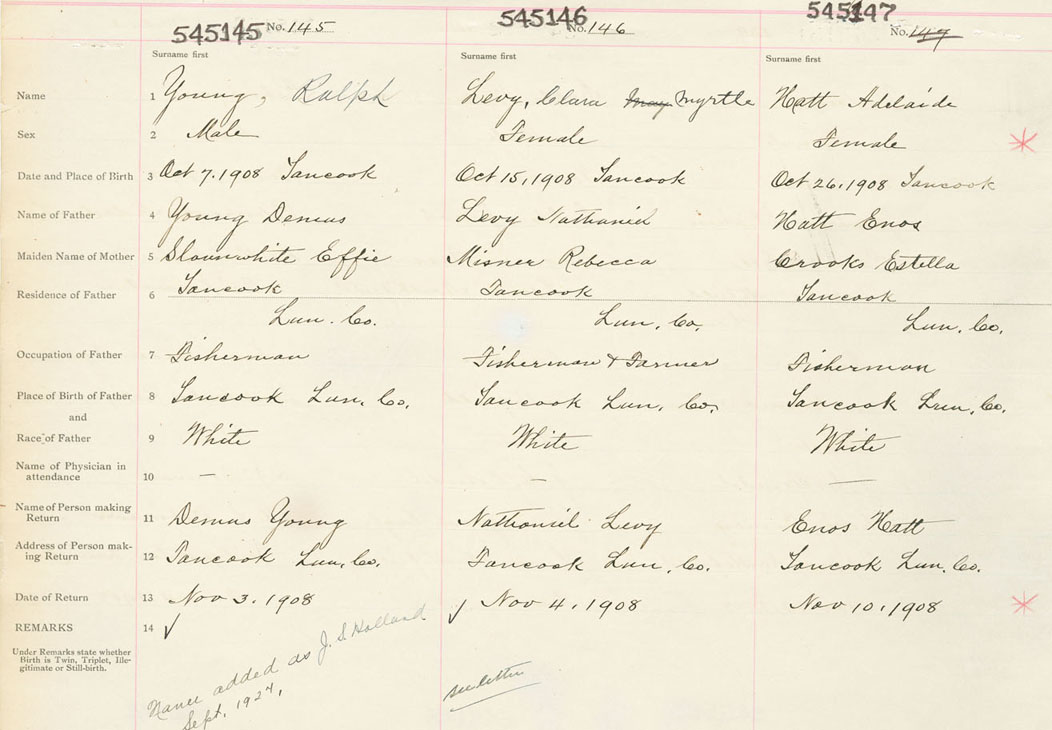 545145 No. 145 545146 No. 146 545147 No. 147
Surname first Surname first Surname first
Name 1 Young, Ralph Levy, Clara May Myrtle Hatt Adelaide
Sex 2 Male Female Female
Date and Place of Birth 3 Oct 7, 1908 Tancook Oct 15, 1908 Tancook Oct 26, 1908 Tancook
Name of Father 4 Young Demus Levy Nathaniel Hatt Enos
Maiden Name of Mother 5 Slaunwhite Effie Misner Rebecca Crooks Estella
Residence of Father 6 Tancook Tancook Tancook
Lun. Co. Lun. Co. Lun. Co.
Occupation of Father 7 Fisherman Fisherman & Farmer Fisherman
Place of Birth of Father 8 Tancook Lun. Co. Tancook Lun. Co. Tancook Lun. Co.
and
Race of Father 9 White White White
Name of Physician in
attendance 10 — — —
Name of Person making
Return 11 Demus Young Nathaniel Levy Enos Hatt
Address of Person mak-
ing Return 12 Tancook Lun. Co. Tancook Lun. Co. Tancook Lun. Co.
Date of Return 13 Nov 3, 1908 ✓ Nov 4, 1908 Nov 10, 1908
REMARKS 14 ✓
Under Remarks state whether
Birth is Twin, Triplet, Ille-
gitimate or Still-birth.
Name added as J. S. Holland
Sept. 1924,
see letter